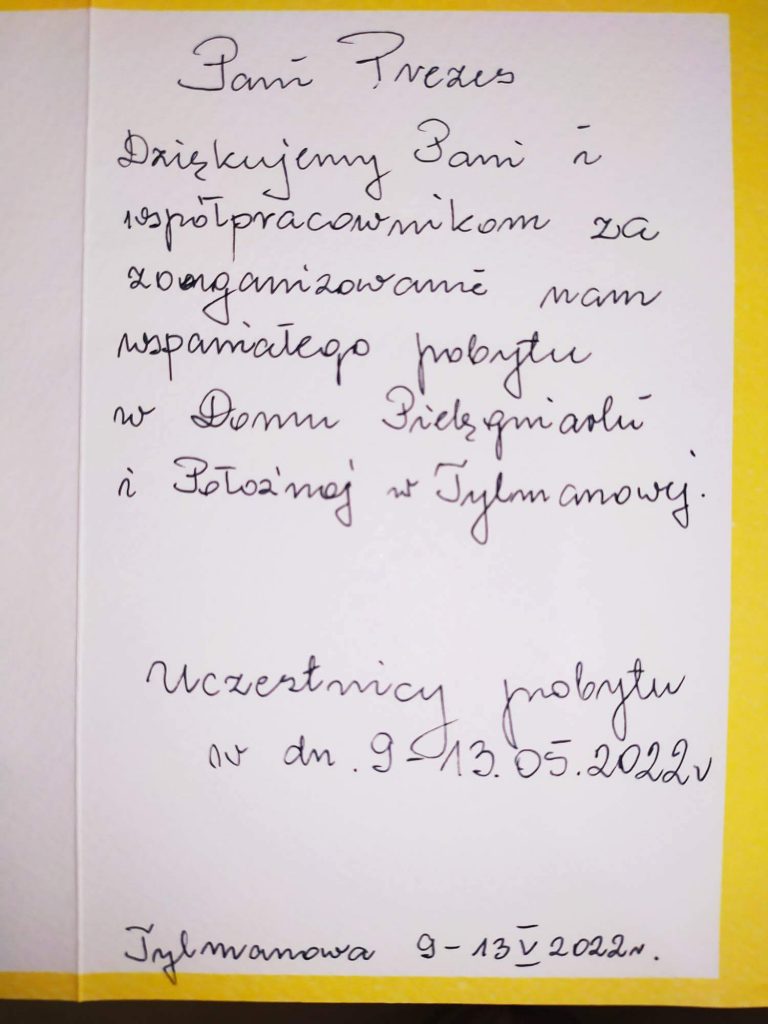 Pani Prezes
Dziękujemy Pani i
współpracownikom za
zorganizowanie nam
wspaniałego pobytu
w Domu Pielęgniarki
i Położnej w Tylmanowej.
Uczestnicy pobytu
w dn. 9-13.05.2022r
Tylmanowa 9-13 V 2022r.